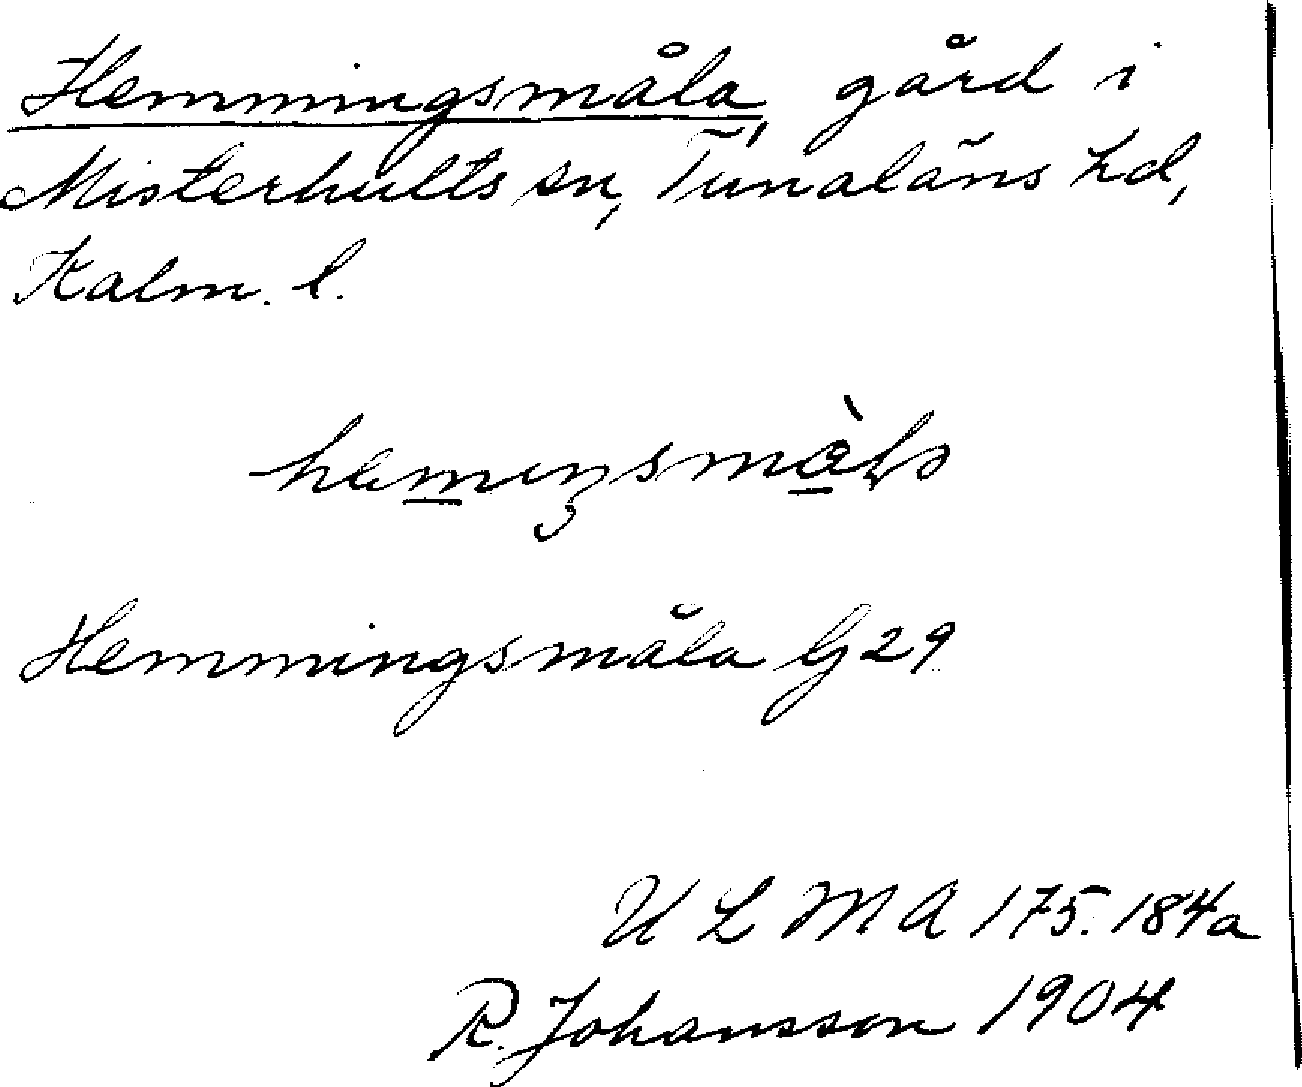 Hemmingsmåla gård i
Misterhults sn, Tunaläns hd,
Kalm. l.
Hemmingsmåla G 29
U L M A 175. 184a
R. Johansson 1904